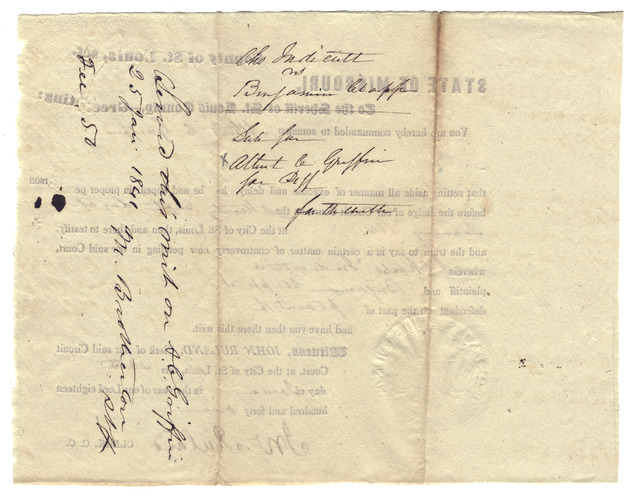 Chs Indicutt
vs
Benjamin Clapp
Sub for
Albert C Griffin
for Deff
forthwith
Served this writ on A. C. Griffin
25 Jan. 1841
M. Brotherton Shff
Fee, 50
STATE OF MISSOURI
County of St. Louis, sct.
To the Sheriff of St. Louis County, Greeting:
You are hereby commanded to summon
that setting aside all manner of excuse and delay, he be and appear in proper person
before the Judge of
the
at the City of St. Louis, then and there to testify,
and the truth to say in a certain matter of controversy now pending in our said Court,
wherein
plaintiff and
defendant on the part of
And have you then there this writ.
Witness, JOHN RULAND, Clerk of our said Circuit
Court, at the City of St. Louis, this
day of
in the year of our Lord eighteen
hundred and forty
Jno Ruland
CLERK, C. C.